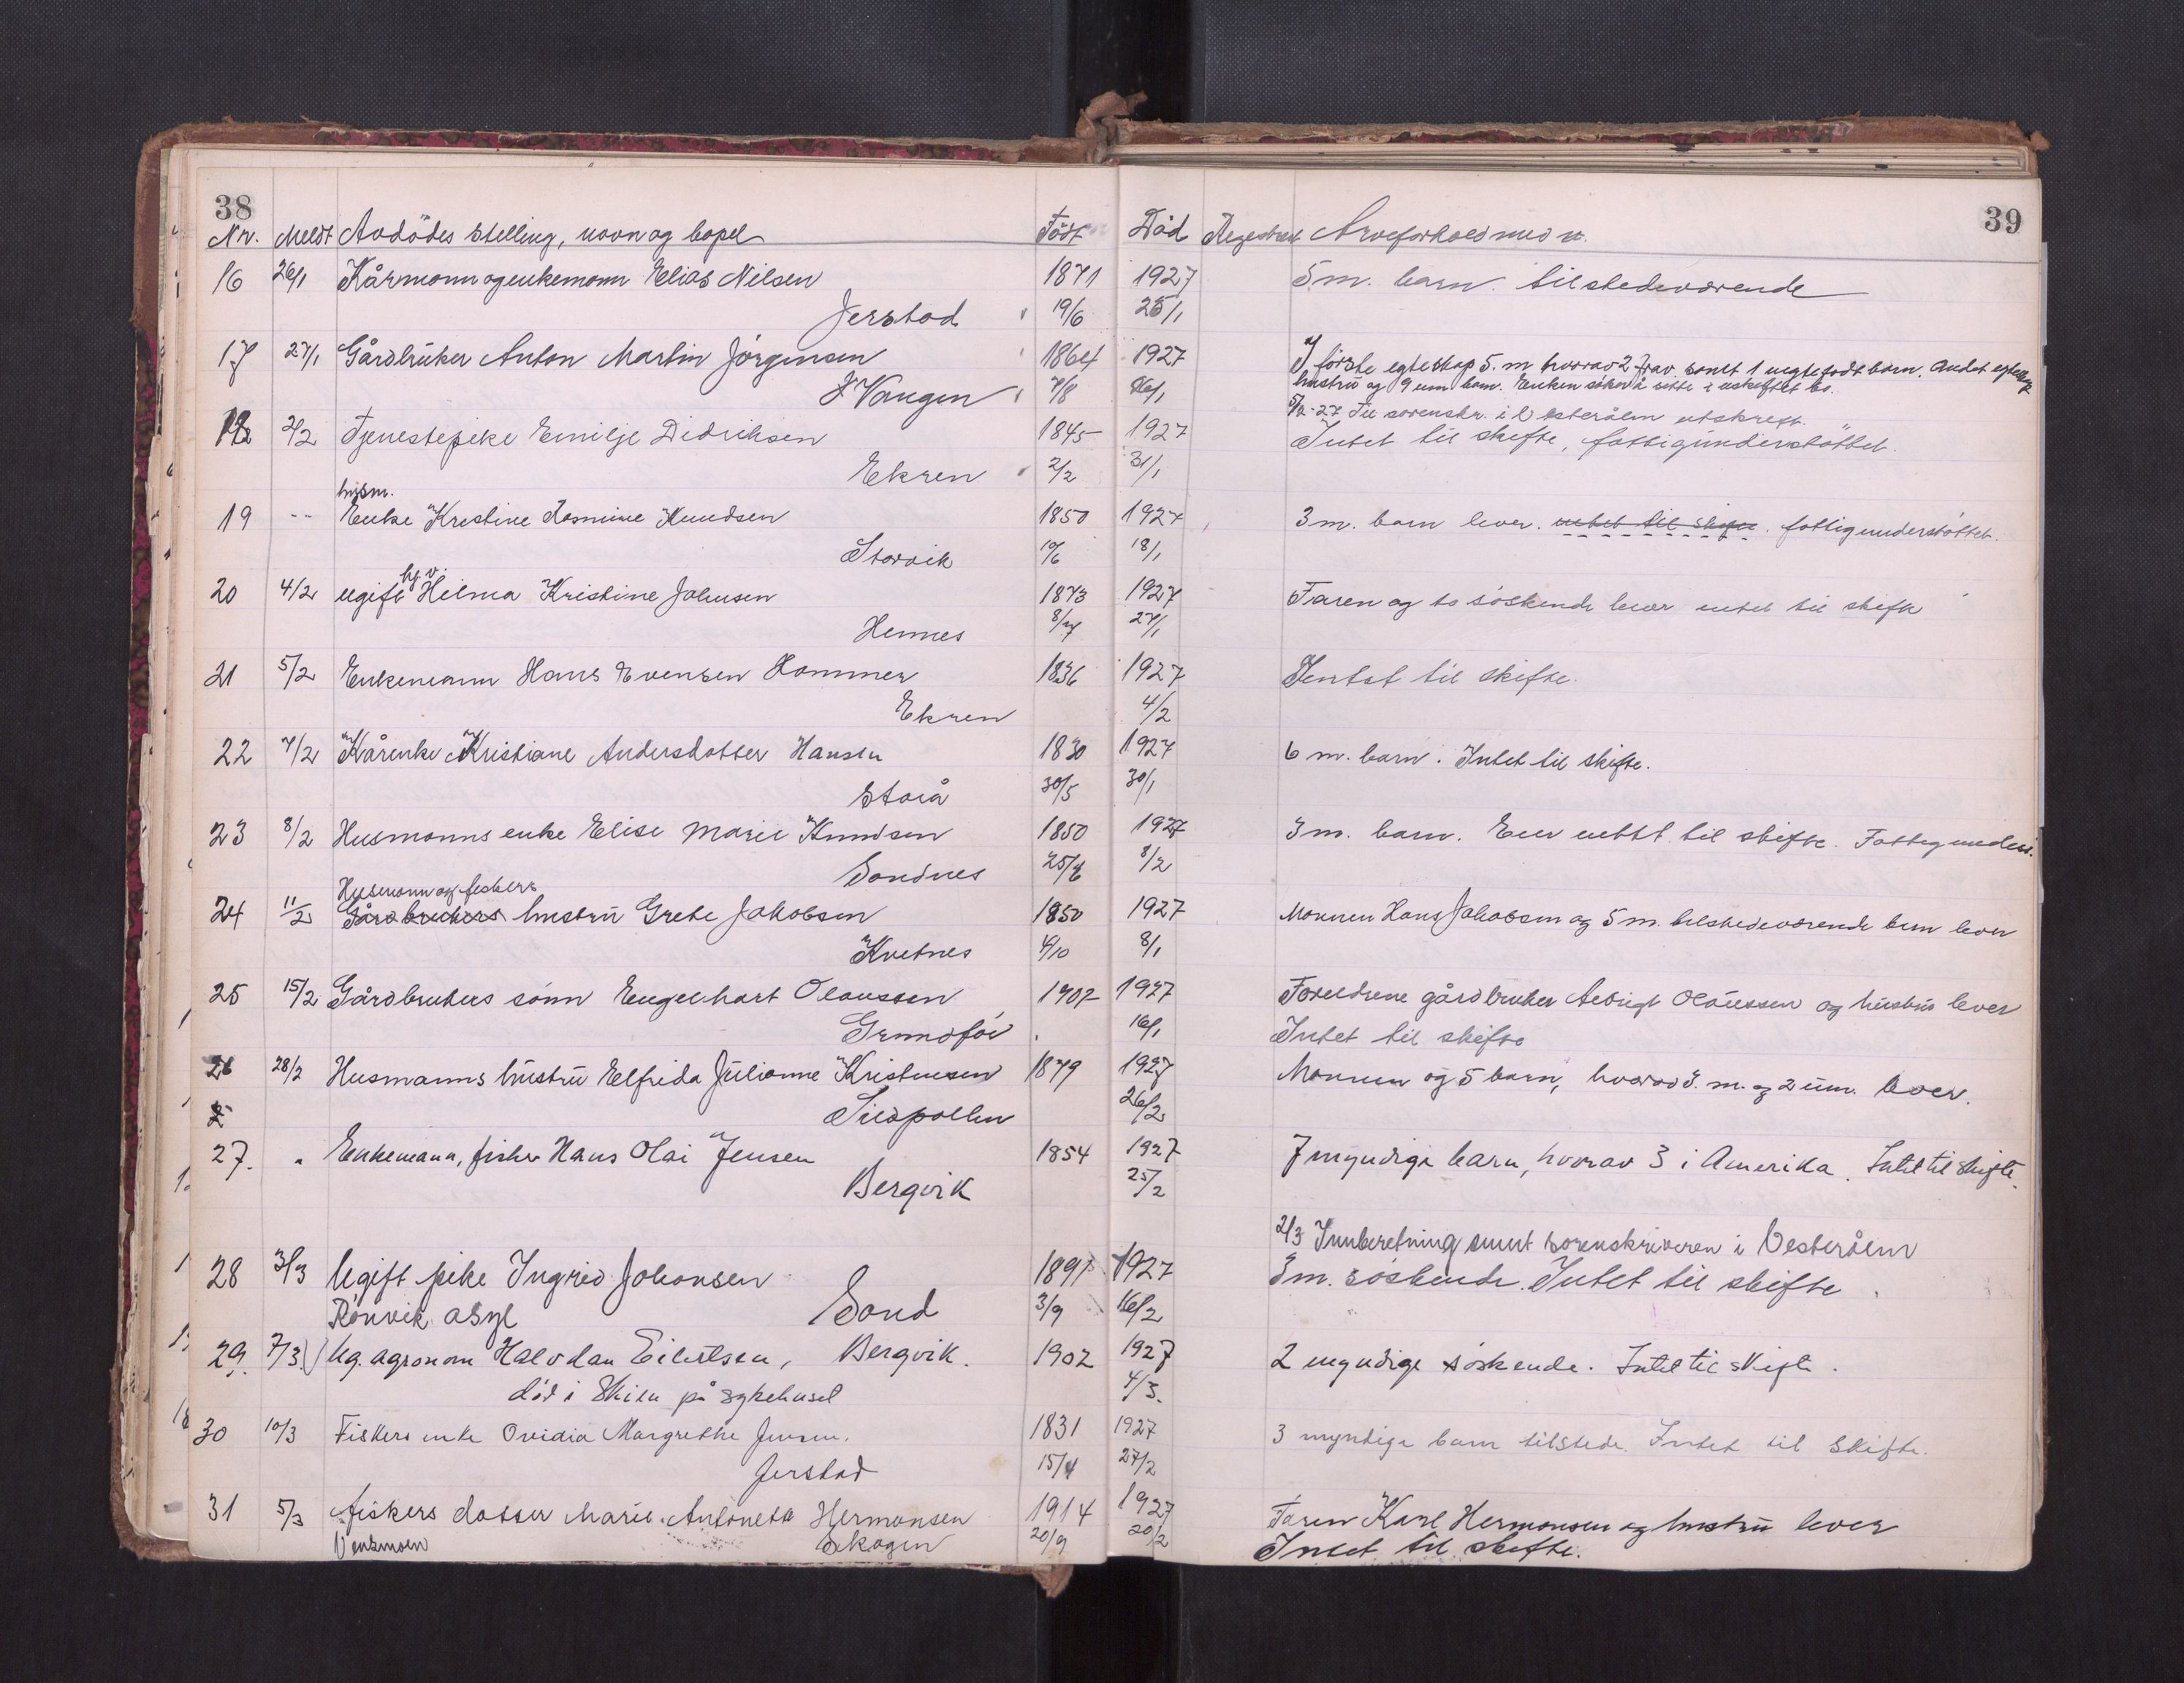 38
Nr. Meldt Avdödes stilling, navn og bopel Född Död Registrert Arveforhold med v. 39
16 26/1 Kårmann og enkemann Elias Nilsen 1871 1927 5 m. barn. tilstedeværende
Jerstad 19/6 25/1
17 27/1 Gårdbruker Anton Martin Jörgensen 1864 1927 I förste egteskap 5. m hvorav 2 frav. samt 1 uegtefödt barn. Andet egteskap
Vangen 7/8 26/1 hustrü og 9 um barn. Enken söker å sitte i uskiftet bo.
5/2-27 Til sorenskr. i Vesterålen utskrift.
18 2/2 Tjenestepike Emilje Didriksen 1845 1927 Intet til skifte, fattigunderstöttet.
Ekren 2/2 31/1
husm.
19 -- Enke Kristine Knudsen 1850 1927 3 m. barn lever. intet til skifte. fattigunderstöttet.
Storvik 18/1
hj.v.
20 4/2 ugift Hilma Kristine Johnsen 1873 1927 Faren og to söskende lever intet til skifte
Hennes 8/7 27/1
21 5/2 Enkemann Hans Evensen Hammer 1836 1927 Intet til skifte.
Ekren 4/2
22 7/2 Kårenke Kristiane Andersdatter Hansen 1830 1927 6 m. barn. Intet til skifte.
Storå 30/5 30/1
23 8/2 Husmanns enke Elise Marie Knudsen 1850 1927 3 m. barn. Eier intet til skifte. Fattigunders.
Sandnes 25/6 8/2
Husmann og fiskers
24 11/2 Gårdbrukers hustrü Grete Jakobsen 1850 1927 Mannen Hans Jakobsen og 5 m. tilstedeværende barn lever
Kvitnes 4/10 8/1
25 15/2 Gårdbrukers sönn Engelhart Olaussen 1902 1927 Foreldrene gårdbruker Olaüssen og hüstrü lever
Grundför 16/1 Intet til skifte
26 28/2 Husmanns hüstrü Elfrida Jülianne Kristensen 1879 1927 Mannen og 5 barn, hvorav 3. m. og 2 üm. lever.
2 Sildpollen 26/2
27. " Enkemann, fisker Hans Olai Jensen 1854 1927 7 myndige barn, hvorav 3 i Amerika. Intet til skifte.
Bergvik 25/2
2/3 Innberetning sendt sorenskriveren i Vesterålen
28 3/3 Ugift pike Ingrid Johansen 1897 1927 3 m. söskende. Intet til skifte.
Rönvik asyl Sand 3/9 16/2
29. 7/3. Ug. agronom Halvdan Eilertsen, Bergvik. 1902 1927 2 myndige söskende. Intet til skifte.
död i Skien på sykehuset 4/3.
30 10/3 Fiskers enke Ovidia Margrethe Jensen. 1831 1927 3 myndige barn tilstede. Intet til skifte.
Jerstad 15/4 27/2
31 5/3 Fiskers datter Marie Antonette Hermansen 1914 1927 Faren Karl Hermansen og hustrü lever
Skogen 20/9 20/2 Intet til skifte.